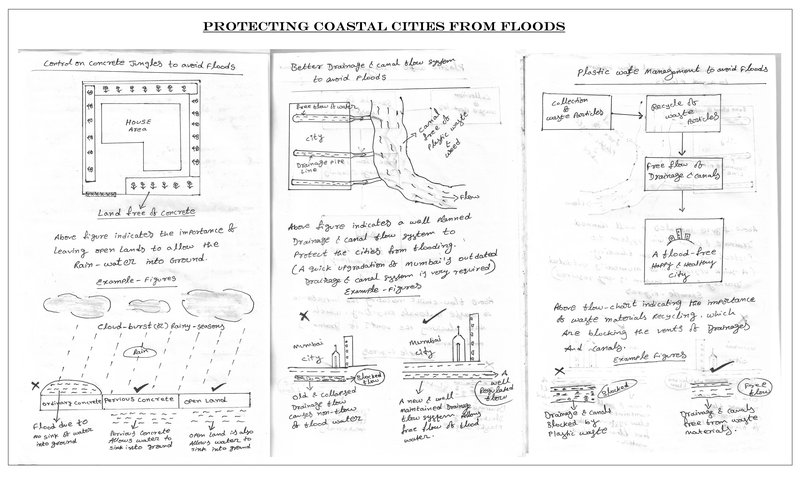 PROTECTING COASTAL CITIES FROM FLOODS
Control on Concrete Jungles to avoid Floods
HOUSE
Area
Land free of concrete
Above figure indicates the importance of
leaving open lands to allow the
Rain-water into Ground.
Example-Figures
Cloud-burst (or) Rainy-seasons
Rain
Ordinary Concrete
Pervious Concrete
open Land
Flood due to
no sink of water
into ground
Pervious Concrete
Allows water to
sink into ground
open land is also
Allows water to
sink into ground
Better Drainage & canal flow system
to avoid Floods
Free flow of water
city
Drainage Pipe
Line
Canal
free of
Plastic waste
&
weed
Flow
Above figure indicates a well planned
Drainage & canal flow system to
Protect the cities from flooding.
(A quick upgradation of Mumbai's outdated
Drainage & canal system is very required)
Example-Figures
Mumbai
city
Blocked
flow
Old & collapsed
Drainage flow
causes non-flow
of flood water
Mumbai
city
A
well
Regulated
flow
A new & well
maintained Drainage
flow system
free flow of flood
water.
Plastic waste Management to avoid Floods
Collection
of
waste Articles
Recycle of
waste
Articles
Free flow of
Drainage & canals
A flood-free
Happy & Healthy
city
Above flow-chart indicating the importance
of waste materials recycling, which
Are blocking the vents of Drainages
And canals.
Example Figures
Blocked
Drainage & canals
Blocked by
Plastic waste
Free
flow
Drainage & canals
free from waste
materials.